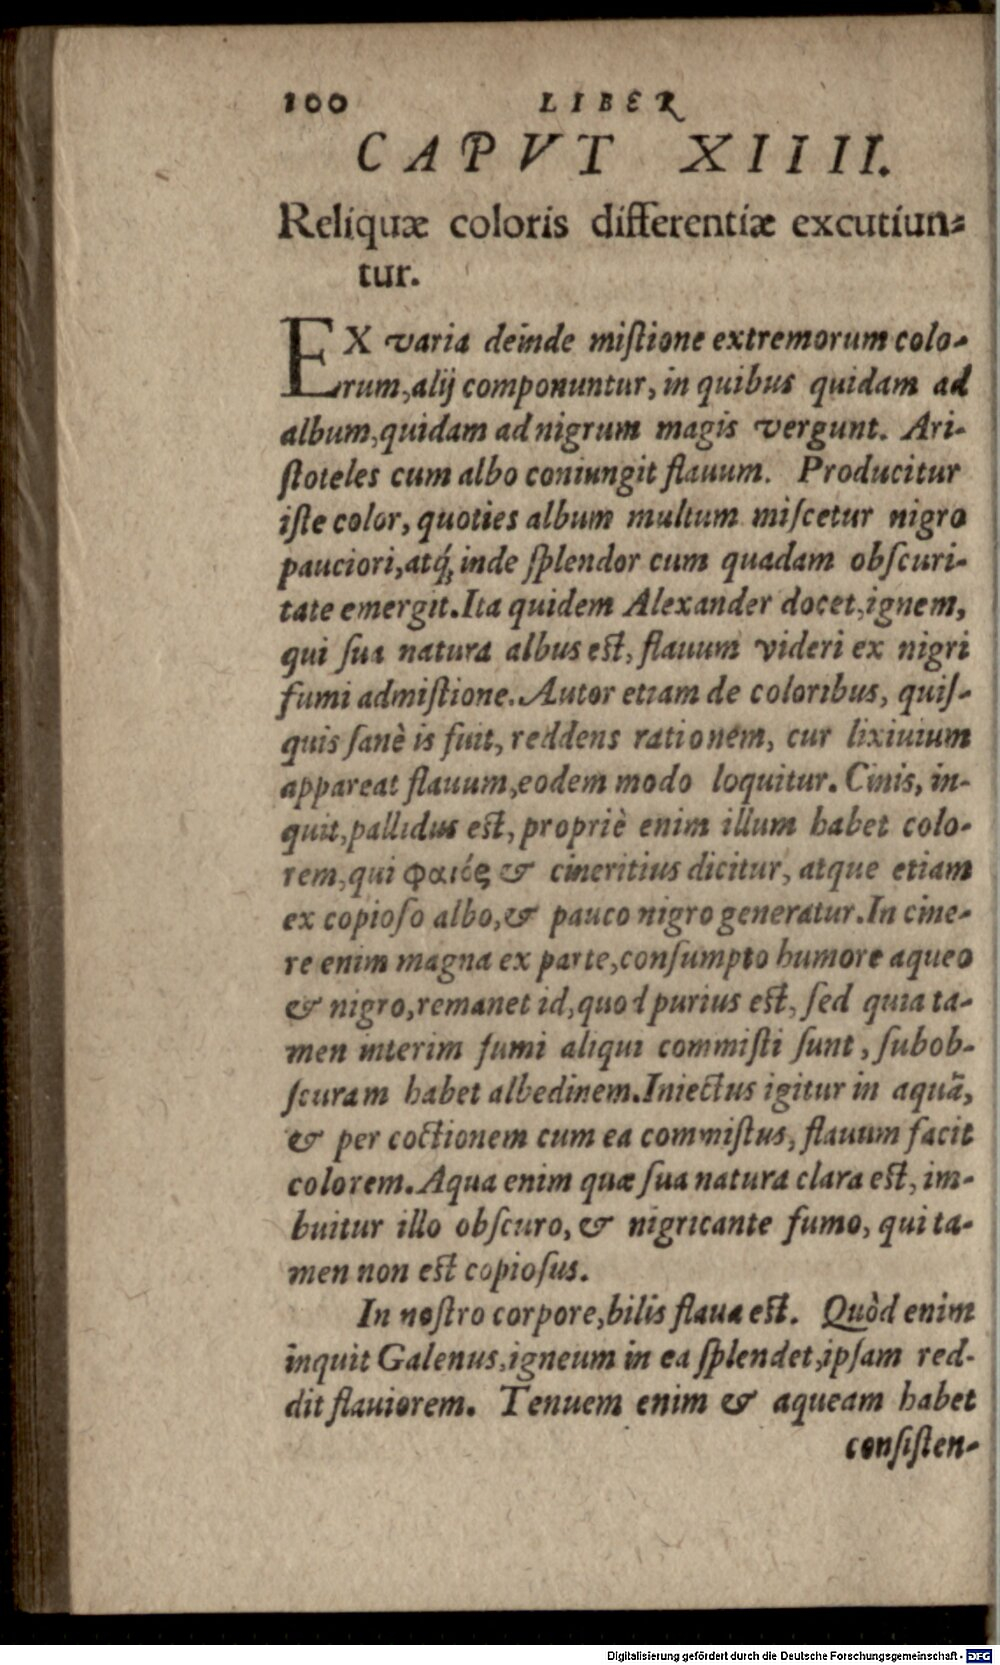 100 LIBER
CAPVT XIIII.
Reliquæ coloris differentiæ excutiun-
tur.
EX varia deinde miſtione extremorum colo-
rum, alij componuntur, in quibus quidam ad
album, quidam ad nigrum magis vergunt. Ari-
ſtoteles cum albo coniungit flauum. Producitur
iſte color, quoties album multum miſcetur nigro
pauciori, atq́; inde ſplendor cum quadam obſcuri-
tate emergit. Ita quidem Alexander docet, ignem,
qui ſua natura albus est, flauum videri ex nigri
fumi admiſtione. Autor etiam de coloribus, quiſ-
quis ſanè is fuit, reddens rationem, cur lixiuium
appareat flauum, eodem modo loquitur. Cinis, in-
quit, pallidus est, propriè enim illum habet colo-
rem, qui φαιός & cineritius dicitur, atque etiam
ex copioſo albo, & pauco nigro generatur. In cine-
re enim magna ex parte, conſumpto humore aqueo
& nigro, remanet id, quod purius est, ſed quia ta-
men interim fumi aliqui commiſti ſunt, ſubob-
ſcuram habet albedinem. Iniectus igitur in aquã,
& per coctionem cum ea commiſtus, flauum facit
colorem. Aqua enim quæ ſua natura clara est, im-
buitur illo obſcuro, & nigricante fumo, qui ta-
men non est copioſus.
In noſtro corpore, bilis flaua est. Quòd enim
inquit Galenus, igneum in ea ſplendet, ipſam red-
dit flauiorem. Tenuem enim & aqueam habet
conſiſten-
Digitalisierung gefördert durch die Deutsche Forschungsgemeinschaft - DFG